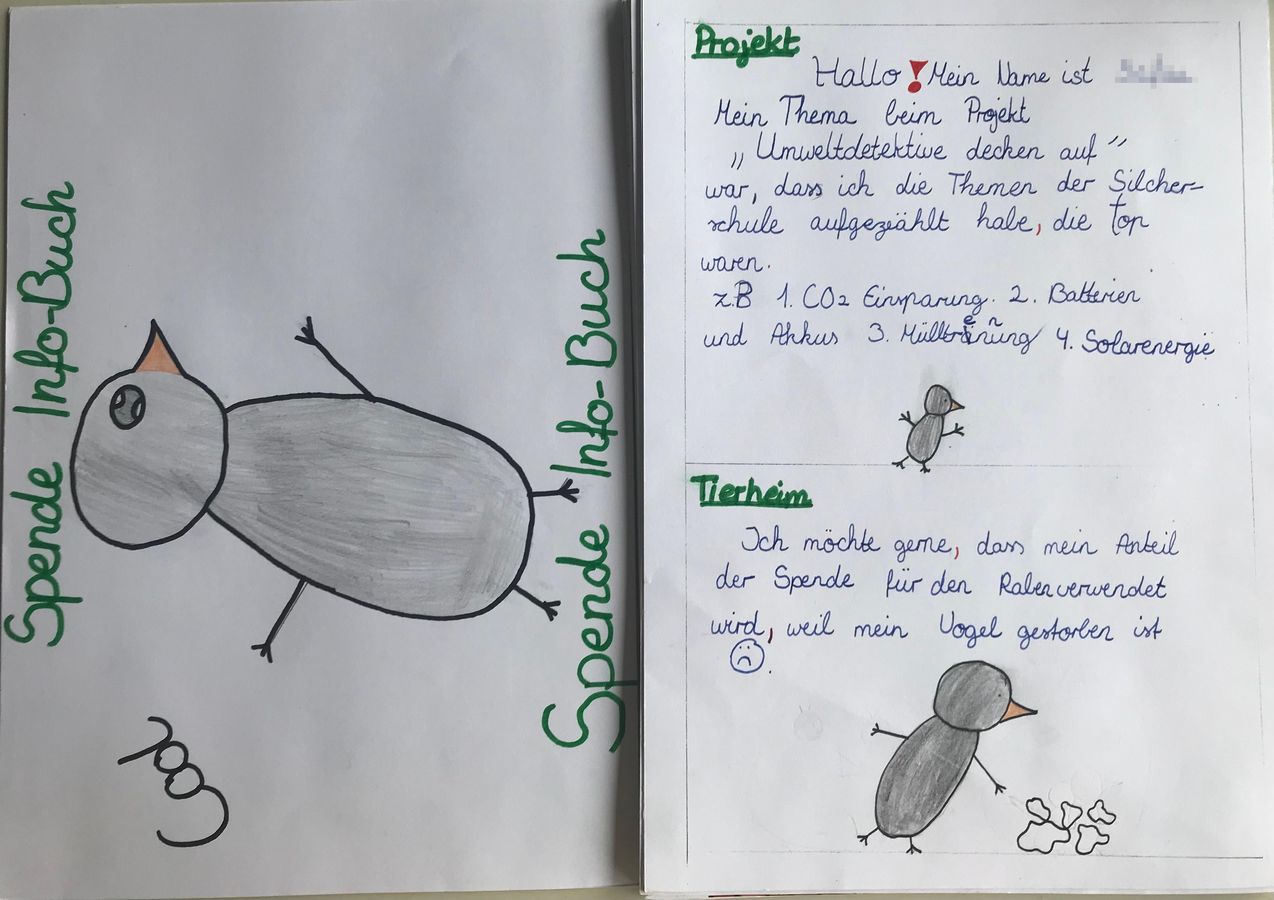 Spende Info-Buch
Spende Info-Buch
Cool
Projekt
Hallo! Mein Name ist
Mein Thema beim Projekt
„Umweltdetektive decken auf"
war, dass ich die Themen der Silcher-
schule aufgezählt habe, die top
waren.
z.B 1. CO2 Einsparung. 2. Batterien
und Akkus 3. Mülltrennung 4. Solarenergie
Tierheim
Ich möchte gerne, dass mein Anteil
der Spende für den Raben verwendet
wird, weil mein Vogel gestorben ist
.